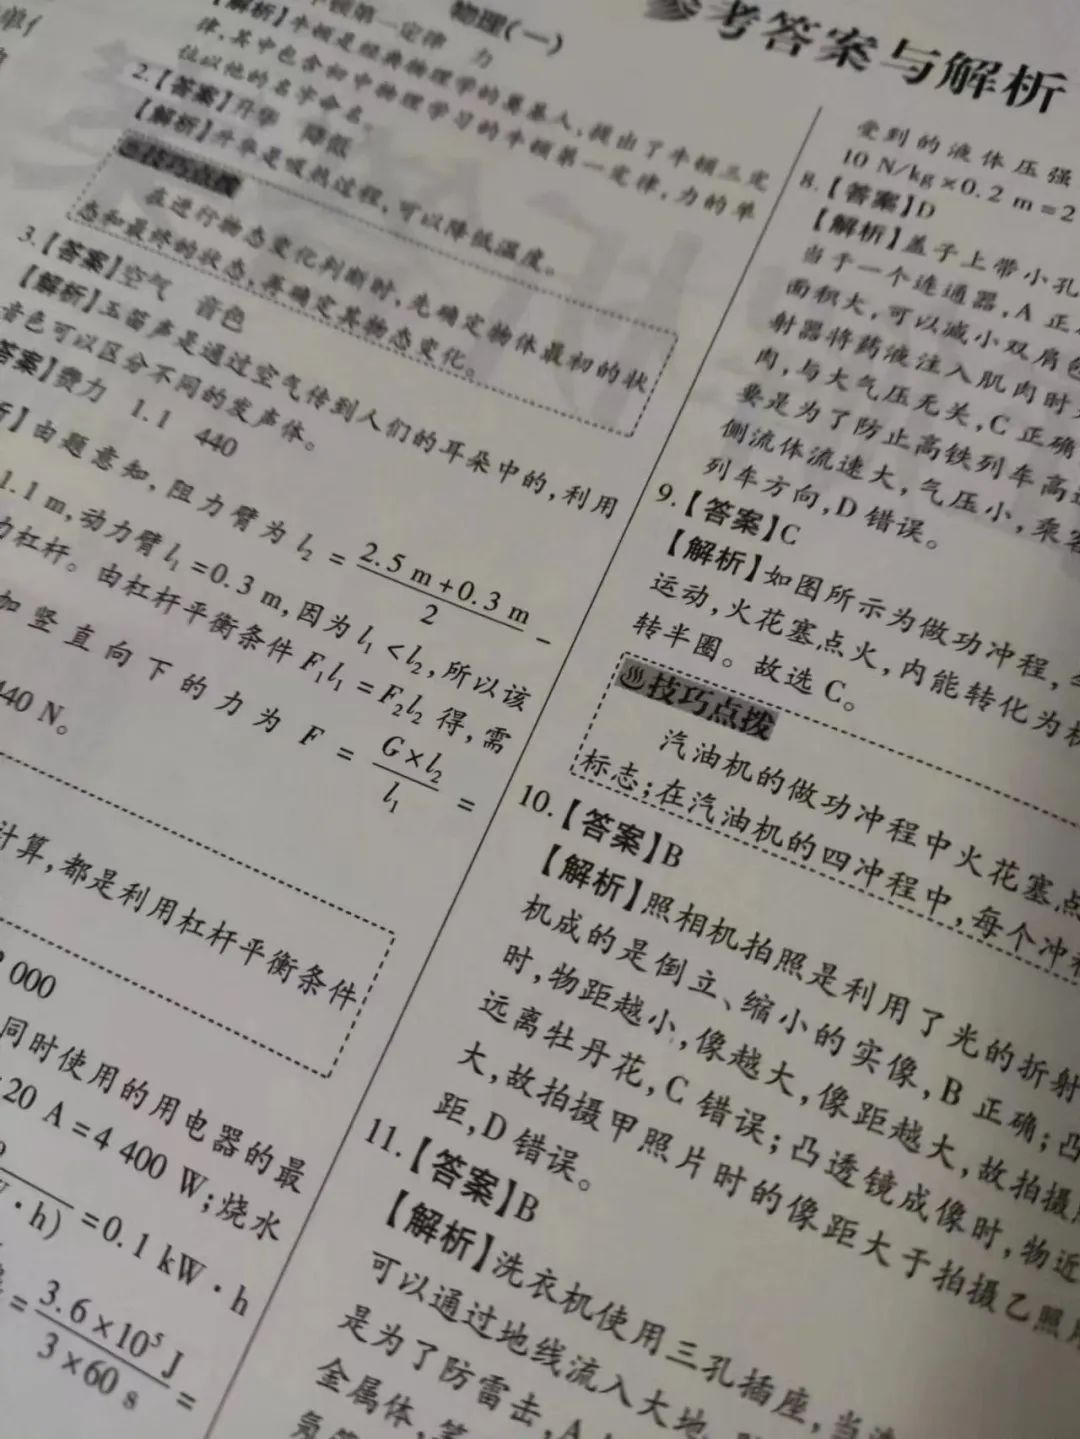 参考答案与解析
物理(一)
牛顿第一定律 力
【解析】牛顿是经典物理学的奠基人,提出了牛顿三定
律,其中包含初中物理学习的牛顿第一定律,力的单
位以他的名字命名。
2.【答案】升华 降低
【解析】升华是吸热过程,可以降低温度。
技巧点拨
在进行物态变化判断时,先确定物体最初的状
态和最终的状态,再确定其物态变化。
3.【答案】空气 音色
【解析】玉笛声是通过空气传到人们的耳朵中的,利用
音色可以区分不同的发声体。
答案】费力 1.1 440
析】由题意知,阻力臂为 l₂ = (2.5 m+0.3 m)/2 −
1.1 m,动力臂 l₁ =0.3 m,因为 l₁ <l₂,所以该
力杠杆。由杠杆平衡条件 F₁l₁ =F₂l₂ 得,需
加竖直向下的力为 F = (G×l₂)/l₁ =
440 N。
计算,都是利用杠杆平衡条件
000
同时使用的用电器的最
20 A=4 400 W;烧水
· h) =0.1 kW · h
= (3.6×10⁵ J)/(3×60 s) =
受到的液体压强
10 N/kg×0.2 m=2
8.【答案】D
【解析】盖子上带小孔
当于一个连通器,A 正
面积大,可以减小双肩包
射器将药液注入肌肉时
肉,与大气压无关,C 正确
要是为了防止高铁列车高速
侧流体流速大,气压小,乘客
列车方向,D 错误。
9.【答案】C
【解析】如图所示为做功冲程,
运动,火花塞点火,内能转化为机
转半圈。故选 C。
技巧点拨
汽油机的做功冲程中火花塞点
标志;在汽油机的四冲程中,每个冲程
10.【答案】B
【解析】照相机拍照是利用了光的折射
机成的是倒立、缩小的实像,B 正确;凸
时,物距越小,像越大,像距越大,故拍摄
远离牡丹花,C 错误;凸透镜成像时,物近
大,故拍摄甲照片时的像距大于拍摄乙照
距,D 错误。
11.【答案】B
【解析】洗衣机使用三孔插座,当
可以通过地线流入大地
是为了防雷击,A
金属体,